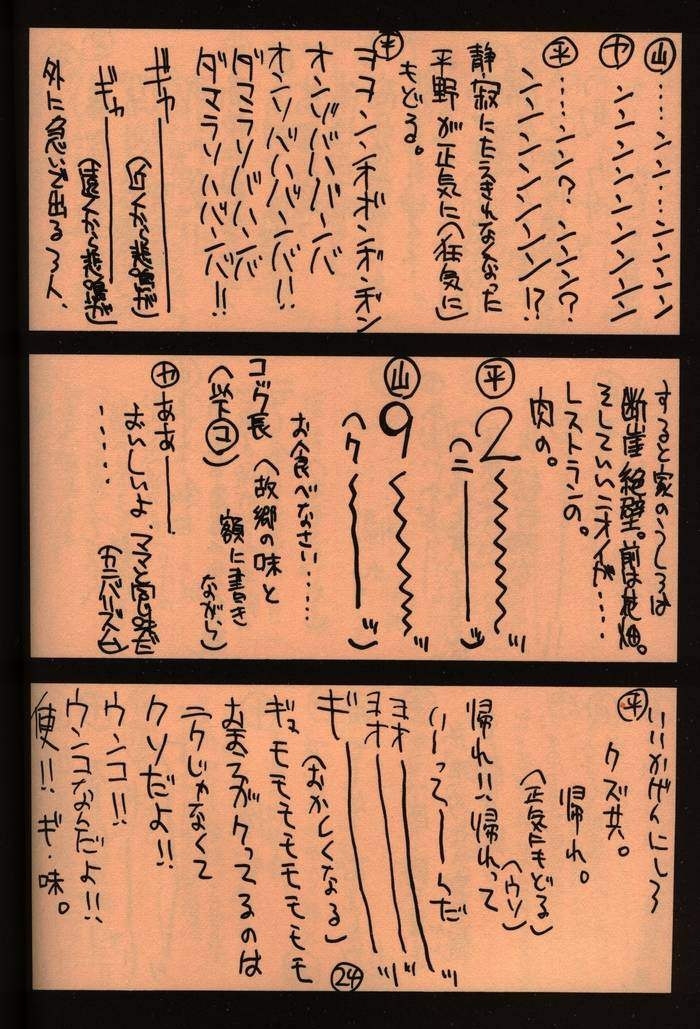 山……ンン…ンンンンン
ヤ ンンンンンンンンン
平……ンン？ンンン？
ンンンンンンンン!?
静寂にたえきれなくなった
平野が正気に（狂気に）
もどる。
平 ヨヨンンチボンボンボン
オンゾババババーバ
オンソバババーバ!!
ダマラソバババーバ
ダマラソハババーバ!!
ギャ――――
（近くから悲鳴が）
ギャ――――
（遠くから悲鳴が）
外に急いで出る3人、
すると家のうしろは
断崖絶壁。前は花畑。
そしていいニオイが……
レストランの。
肉の。
平 2〜〜〜〜ッ
（ニ――――ッ）
山 9〜〜〜〜ッ
（ク〜――――ッ）
お食べなさい……
コック長（故郷の味と
額に書き
ながら）
（以下コ）
ヤ ああ――――
おいしいよ、ママと宮の味だ
……
（カニバリズム）
平 いいかげんにしろ
クズ共。
帰れ。
（正気にもどる）
（ウソ）
帰れ!!帰れって
いーってーーんだ
ヨオ――――ッ
ヨオ――――ッ
ギ――――ッ
（おかしくなる）
ギョモモモモモモモモ
おまえがクってるのは
ニクじゃなくて
クソだよ!!
ウンコ!!
ウンコなんだよ!!
便!!ギ・味。
24